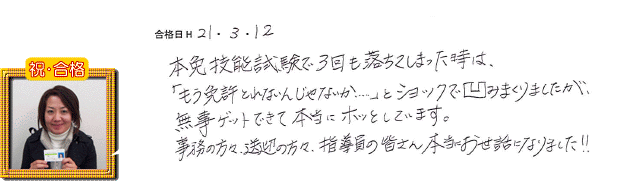 合格日H 21・3・12
祝・合格
本免技能試験で3回も落ちてしまった時は、
「もう免許とれないんじゃないか……」とショックで凹みまくりましたが、
無事ゲットできて本当にホッとしています。
事務の方々、送迎の方々、指導員の皆さん本当にお世話になりました!!